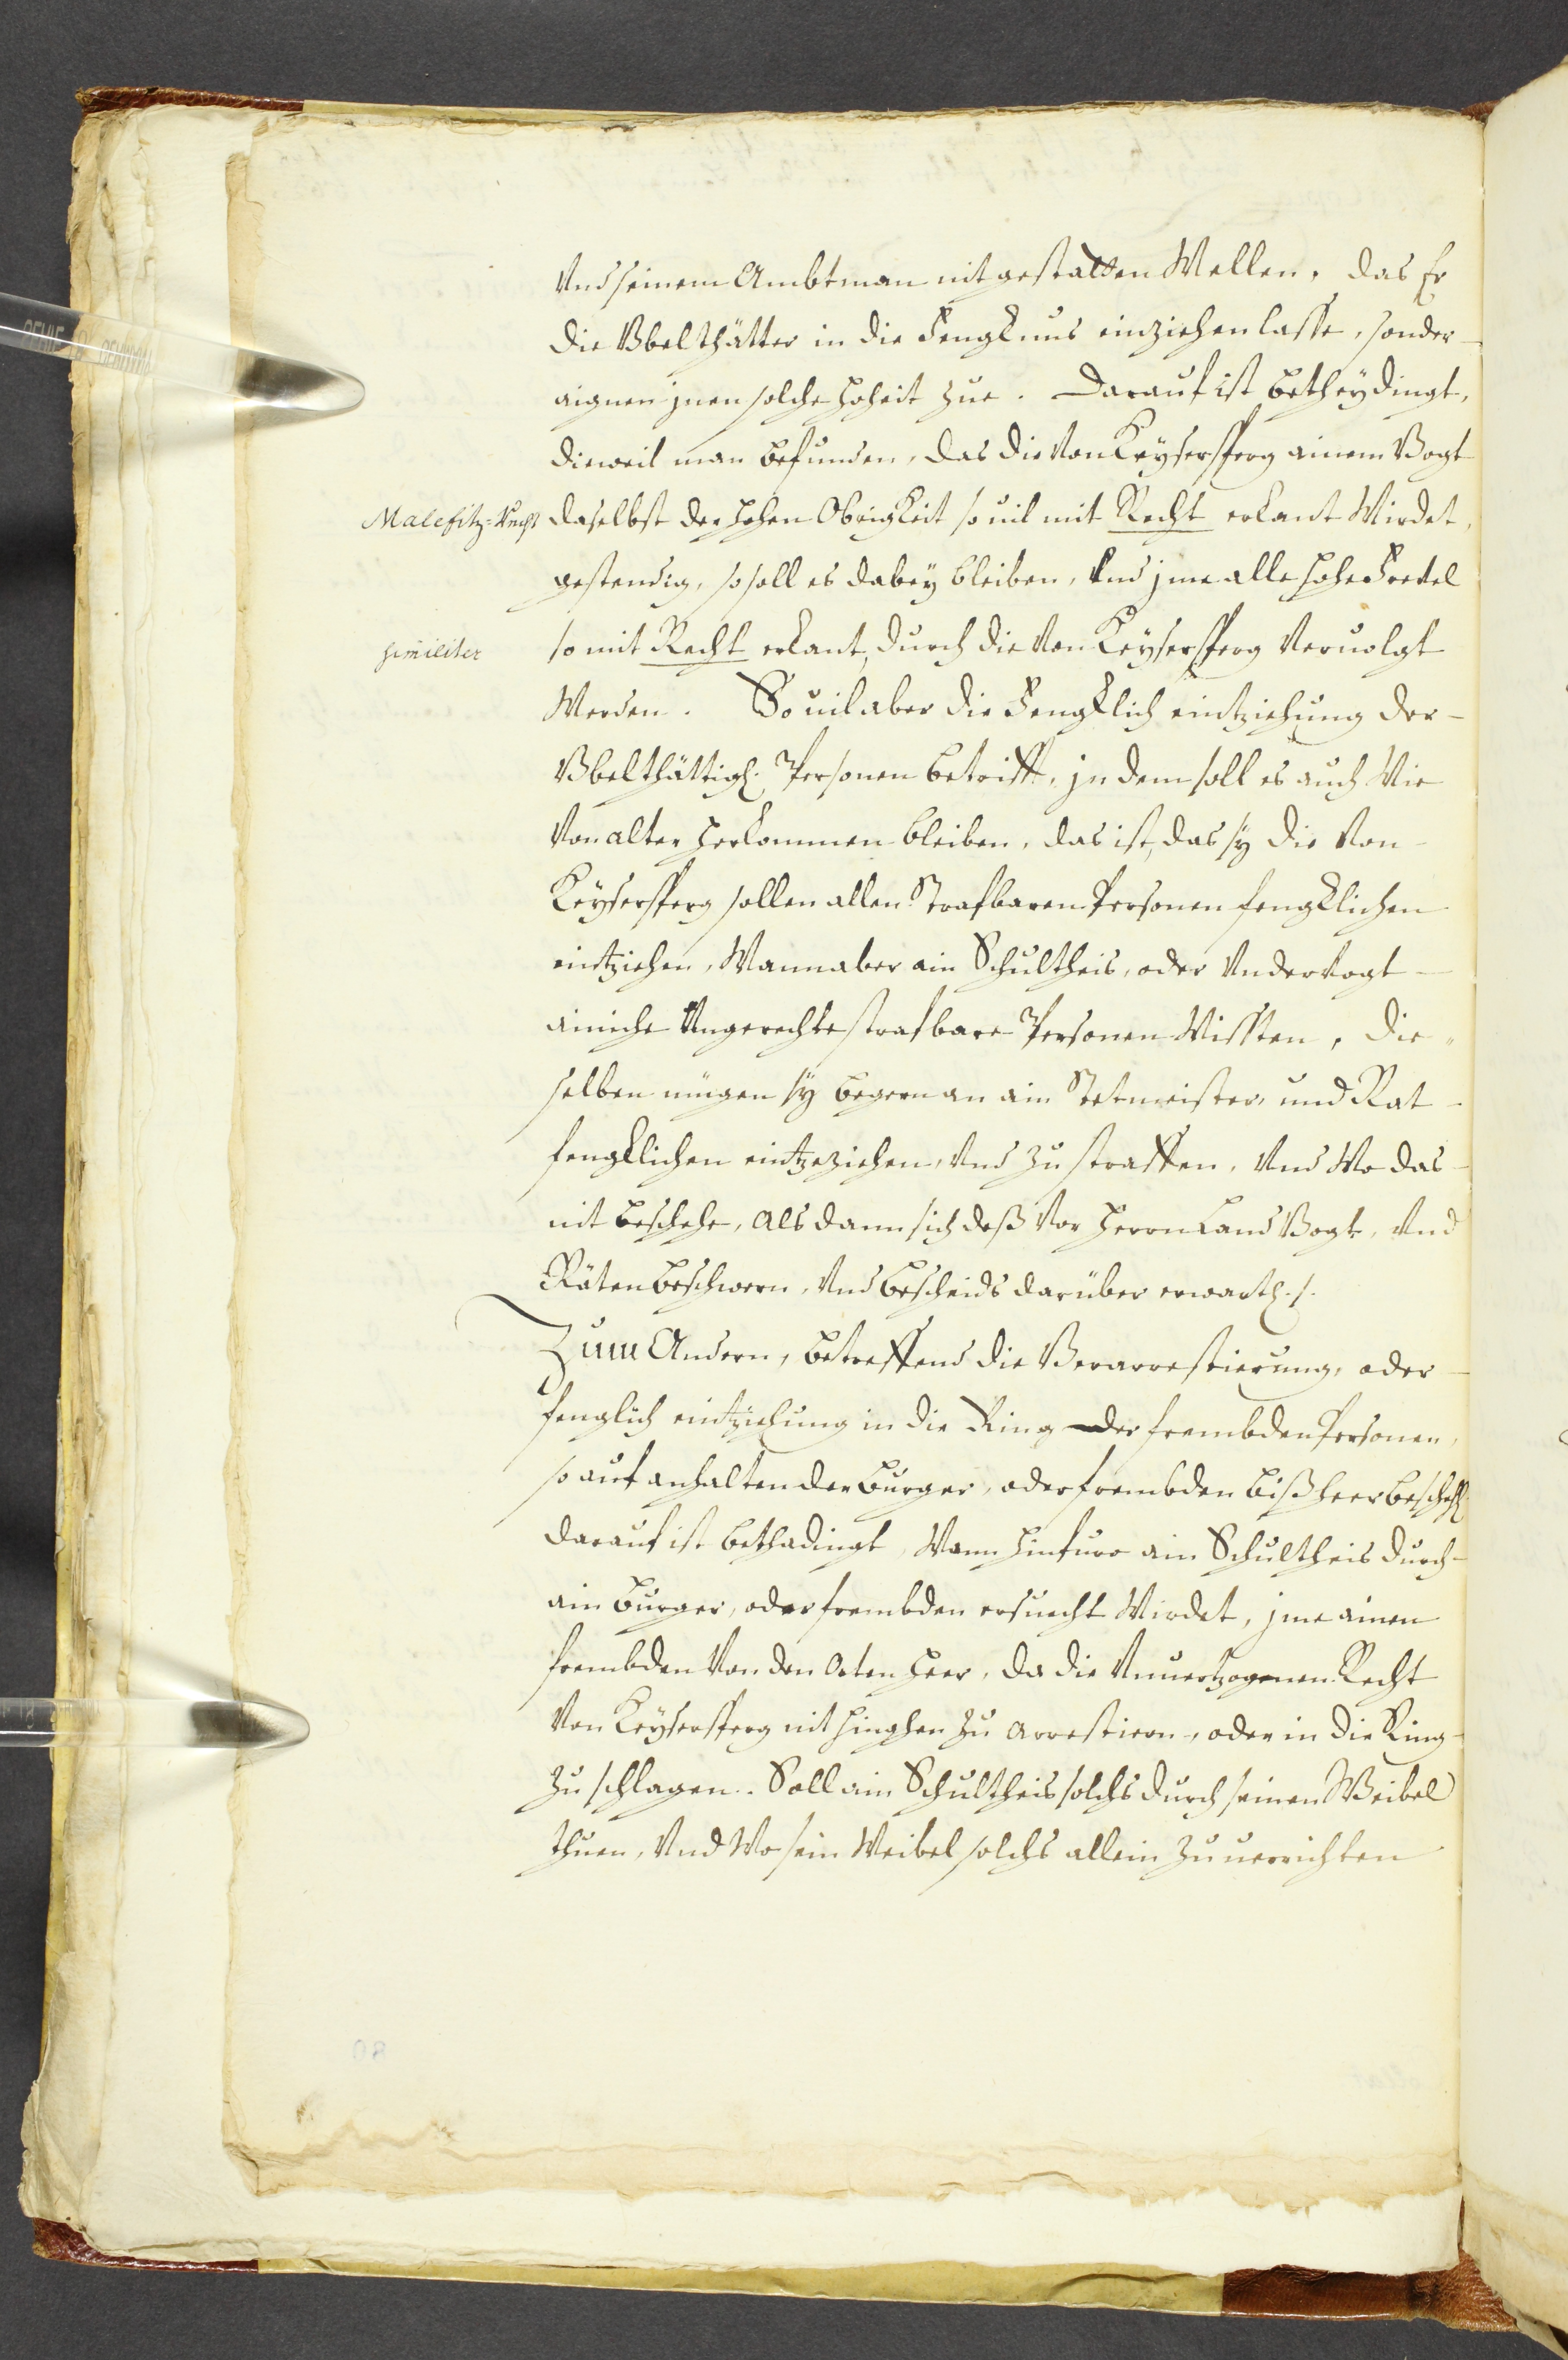 Vnd seinem Ambtman nit gestatten Wellen, das Er
die Vbelthätter in die Fengknus einziehen lasse, sonder
aignen jnen solche hoheit zue. Darauf ist betheÿdingt,
dieweil man befunden, das die Von Keÿsersperg ainem Vogt
Malefitz-Recht
daselbst der hohen Obrigkeit so uil mit Recht erkant Wirdet,
gestendig, so soll es dabeÿ bleiben, Vnd jme alle hohe Freuel
similiter
so mit Recht erkant, durch die Von Keÿsersperg Veruolgt
Werden. So uil aber die Fengklich eintziehung der
Vbelthättigen Personen betrifft, jn dem soll es auch Wie
Von alter herkommen bleiben, das ist, das sÿ die Von
Keÿsersperg sollen allen Strafbaren Personen fengklichen
eintziehen, Wann aber ain Schultheis, oder Vndervogt
ainiche Vngerechte strafbare Personen Wissten, die
selben mügen sÿ begern an ain Stetmeister, und Rat
fengklichen eintzeziehen, Vnd zu straffen, Vnd Wo das
nit beschehe, als dann sich deß Vor Herrn Land Vogt, Vnd
Räten beschwern, Vnd bescheids darüber erwarth. /.
Zum Andern, betreffend die Verarrestierung, oder
fenglich eintziehung in die Ring der frembden Personen,
so auf anhalten der Burger, oder frembden bißheer beschehen
darauf ist bethadingt, Wann hinfuro ain Schultheis durch
ain Burger, oder frembden ersuecht Wirdet, jme ainen
frembden Von den Orten heer, da die Vnuertzogenen Recht
Von Keÿsersperg nit hinghen zu arrestiern, oder in die Ring
zu schlagen. Soll ain Schultheis solchs durch seinen Weibel
thuen, Vnd Wo sein Weibel solchs allein zu uerrichten